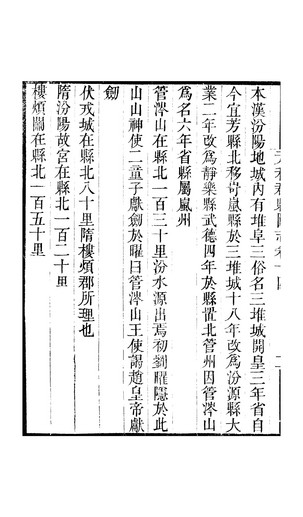 本漢汾陽地城内有堆阜三俗名三堆城開皇三年省自
今宜芳縣北移岢嵐縣於三堆城十八年改爲汾源縣大
業二年改爲靜樂縣武德四年於縣置北管州因管涔山
爲名六年省縣屬嵐州
管涔山在縣北一百三十里汾水源出焉初劉曜隱於此
山山神使二童子獻劒於曜曰管涔山王使謁趙皇帝獻
劒
伏戎城在縣北八十里隋樓煩郡所理也
隋汾陽故宮在縣北一百二十里
樓煩關在縣北一百五十里